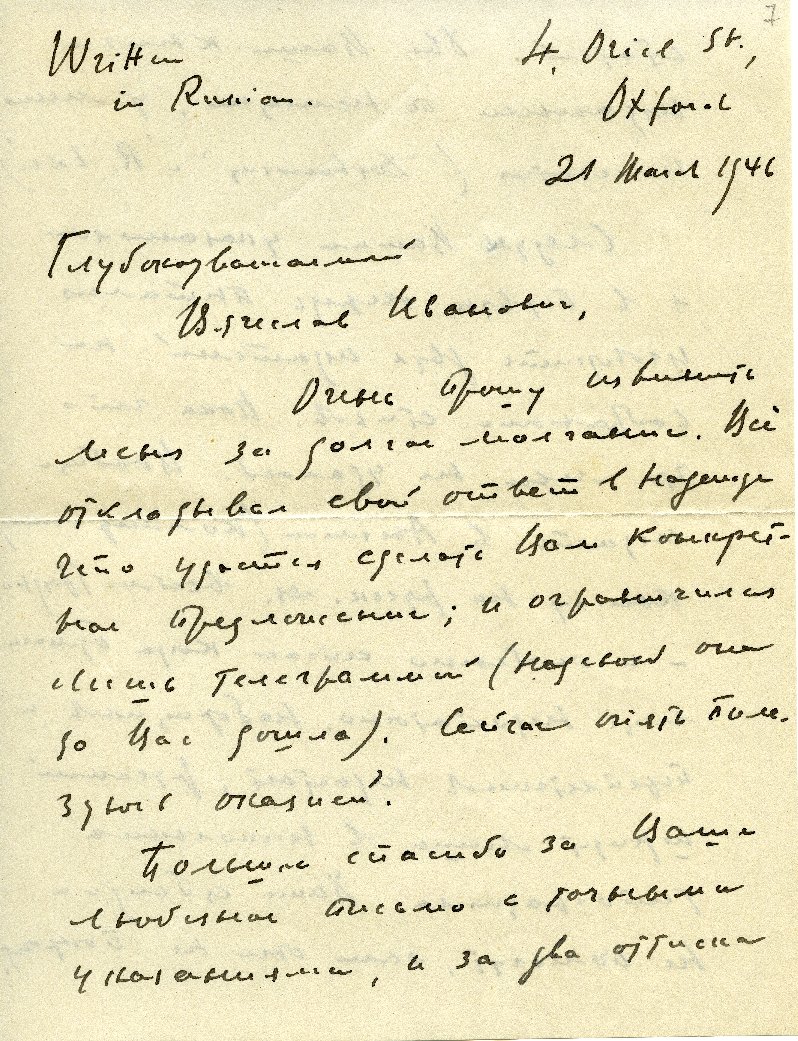 7
Written
in Russian.
4, Oriel St.,
Oxford
21 March 1946
Глубокоуважаемый
Вячеслав Иванович,
Очень прошу извинить
меня за долгое молчание. Всё
откладывал свой ответ в надежде
что удастся сделать Вам конкрет-
ное предложение; и ограничился
лишь телеграммой (надеюсь она
до Вас дошла). Сейчас опять поль-
зуюсь оказией.
Большое спасибо за Ваше
любезное письмо с точными
указаниями, и за два оттиска